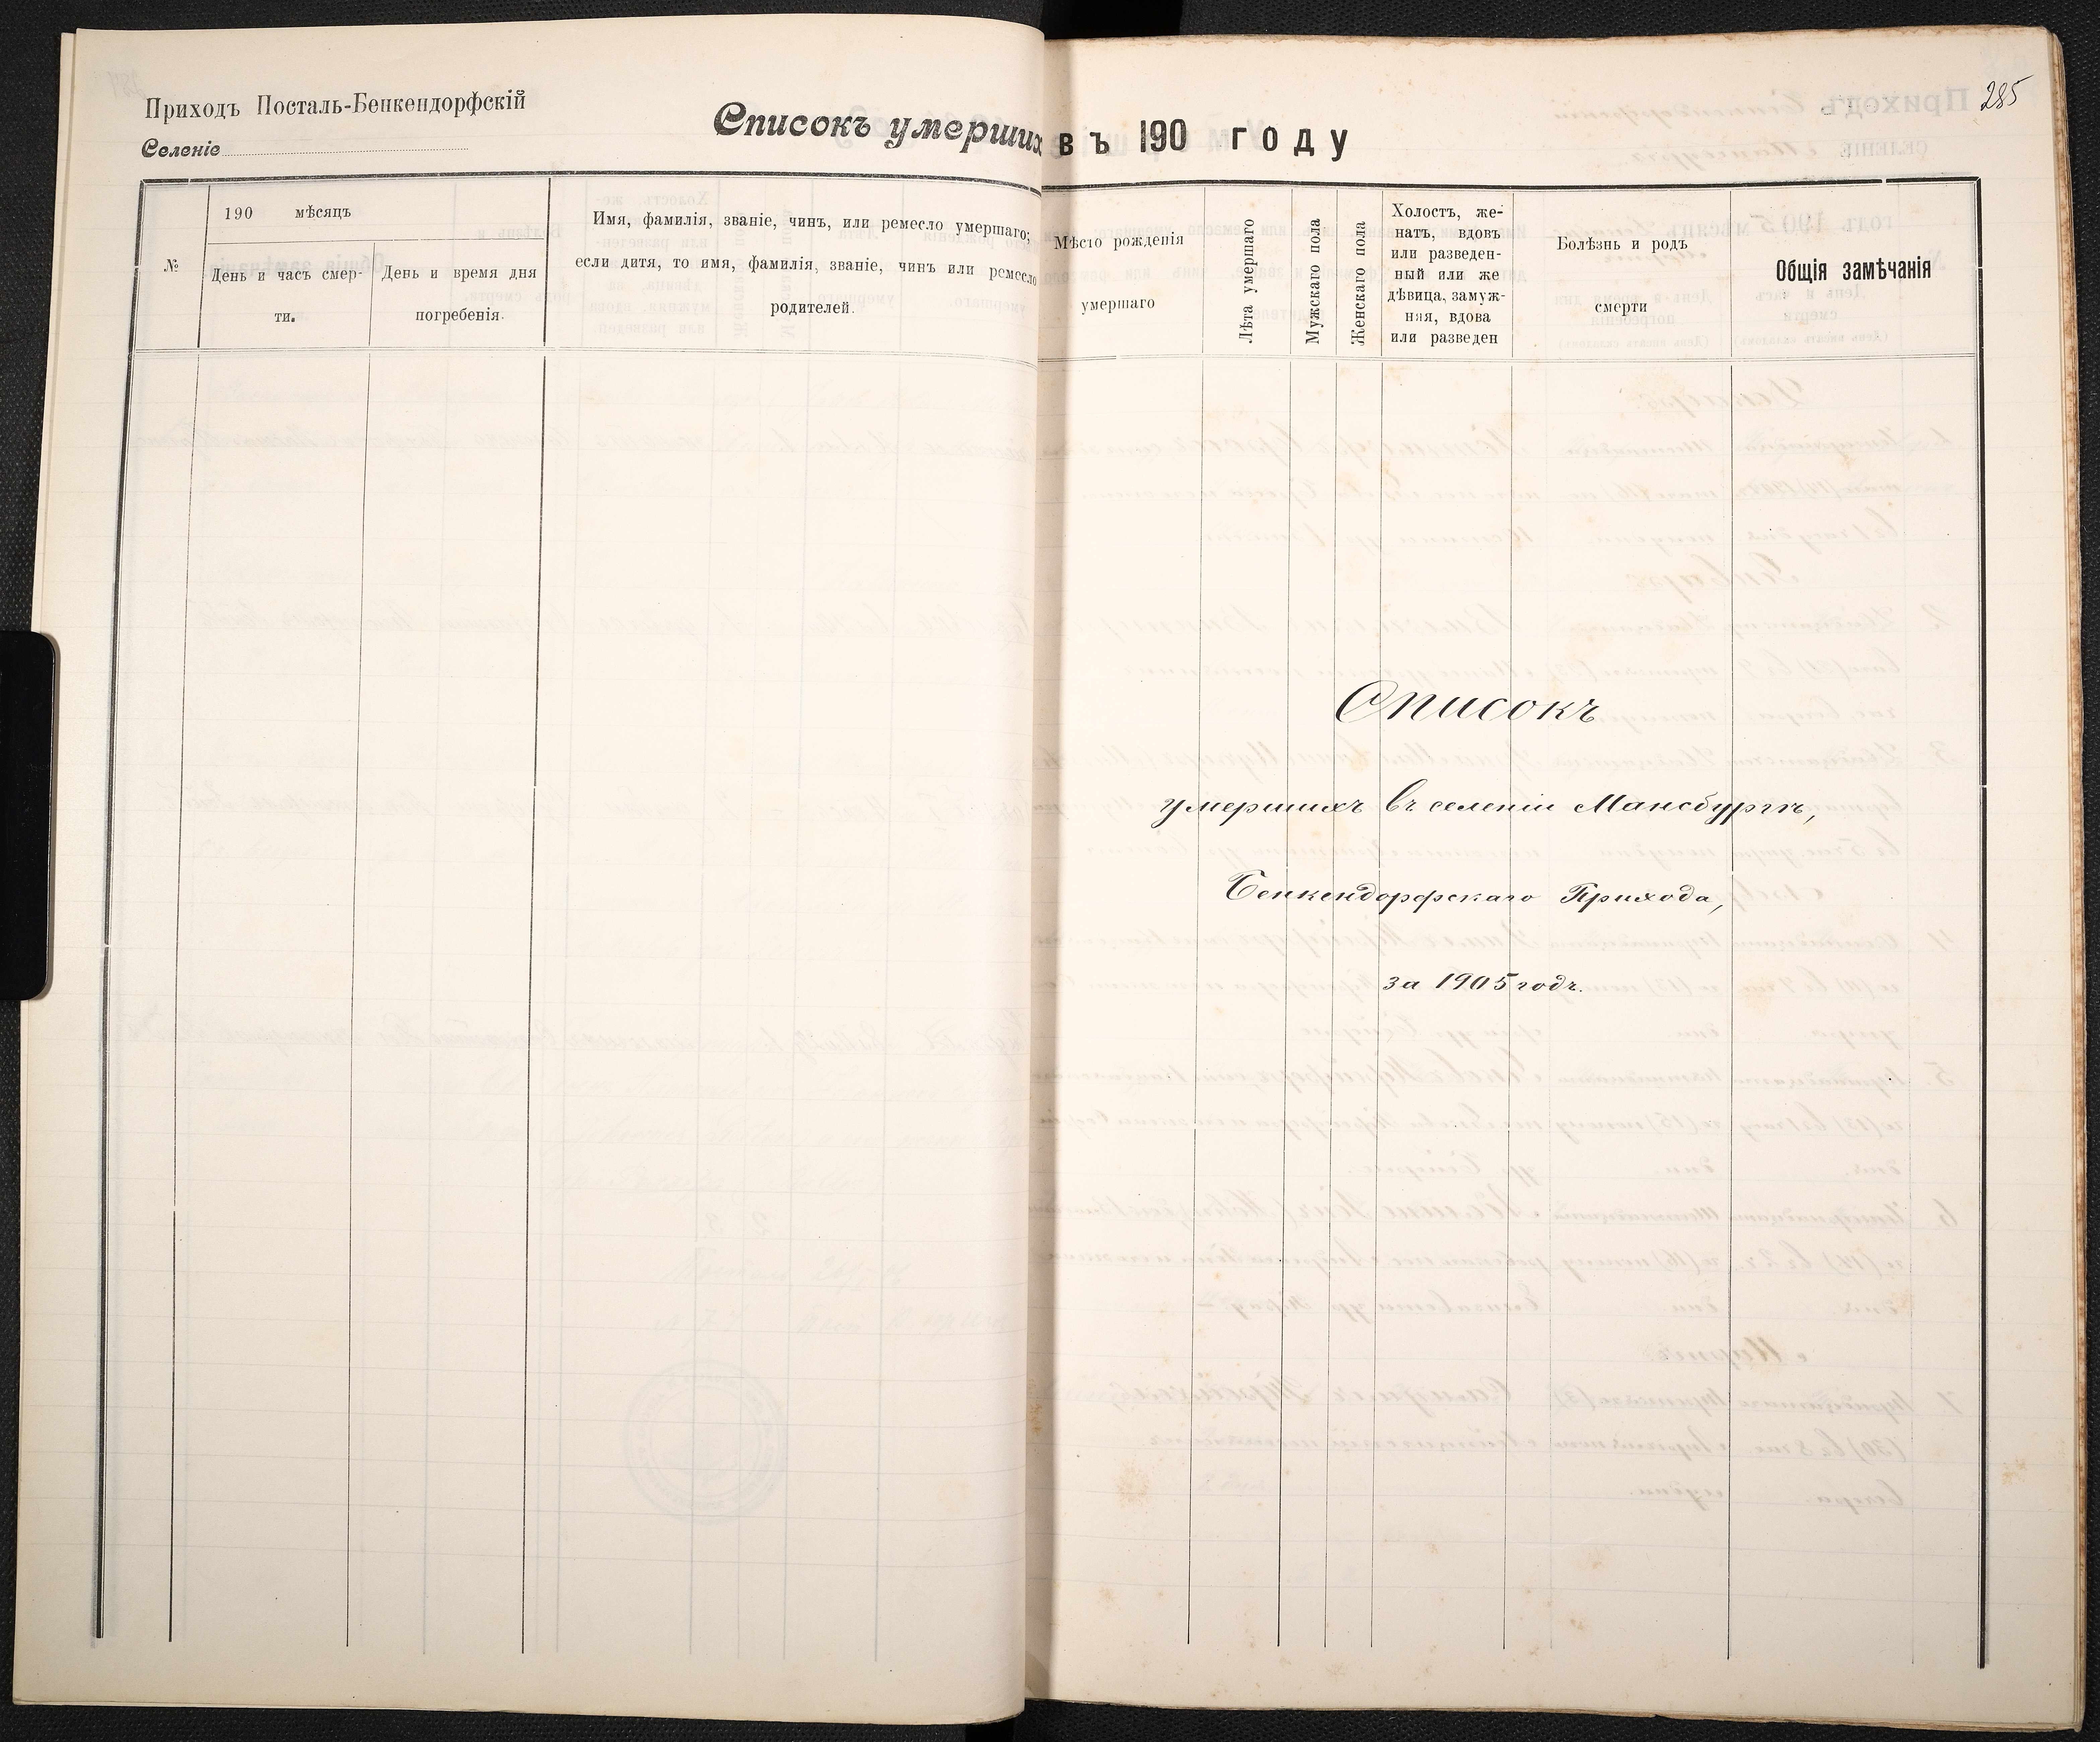 Приходъ Посталь-Бенкендорфскій
Селеніе
Списокъ умерших въ 190 году
285
№
190 мѣсяцъ
День и часъ смер-
ти.
День и время дня
погребенія.
Имя, фамилія, званіе, чинъ, или ремесло умершаго;
если дитя, то имя, фамилія, званіе, чинъ или ремесло
родителей.
Мѣсто рожденія
умершаго
Лѣта умершаго
Мужскаго пола
Женскаго пола
Холостъ, же-
натъ, вдовъ
или разведен-
ный или же
дѣвица, замуж-
няя, вдова
или разведен
Болѣзнь и родъ
смерти
Общія замѣчанія
Списокъ
умершихъ въ селеніи Мансбургѣ,
Бенкендорфскаго Прихода,
за 1905 годъ.